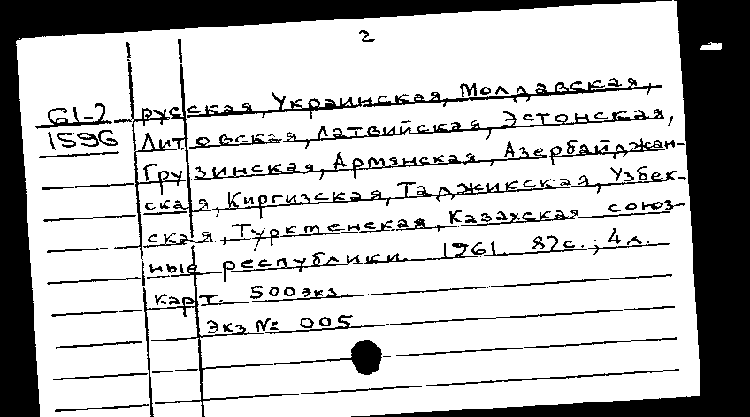 2
61-2 русская, Украинская, Молдавская,
1596 Литовская, Латвийская, Эстонская,
Грузинская, Армянская, Азербайджан-
ская, Киргизская, Таджикская, Узбек-
ская, Туркменская, Казахская союз-
ные республики. 1961. 87с.; 4 л.
карт. 500экз
Экз № 005